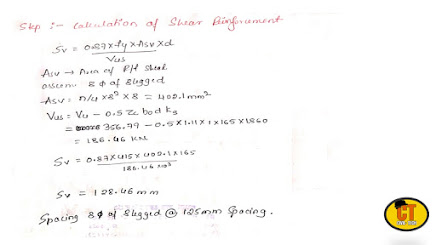 Step :- Calculation of Shear Reinforcement
Sv = 0.87 x fy x Asv x d
Vus
Asv → Area of
assume 8 ϕ of 8 legged
Asv = π/4 x 8² x 8 = 402.1 mm²
Vus = Vu - 0.5 τc bod ks
= 356.79 - 0.5 x 1.11 x 1 x 165 x 1860
= 186.46 KN
Sv = 0.87 x 415 x 402.1 x 165
186.46 x 10³
Sv = 128.46 mm
Spacing 8 ϕ of 8 legged @ 125mm Spacing.
CT